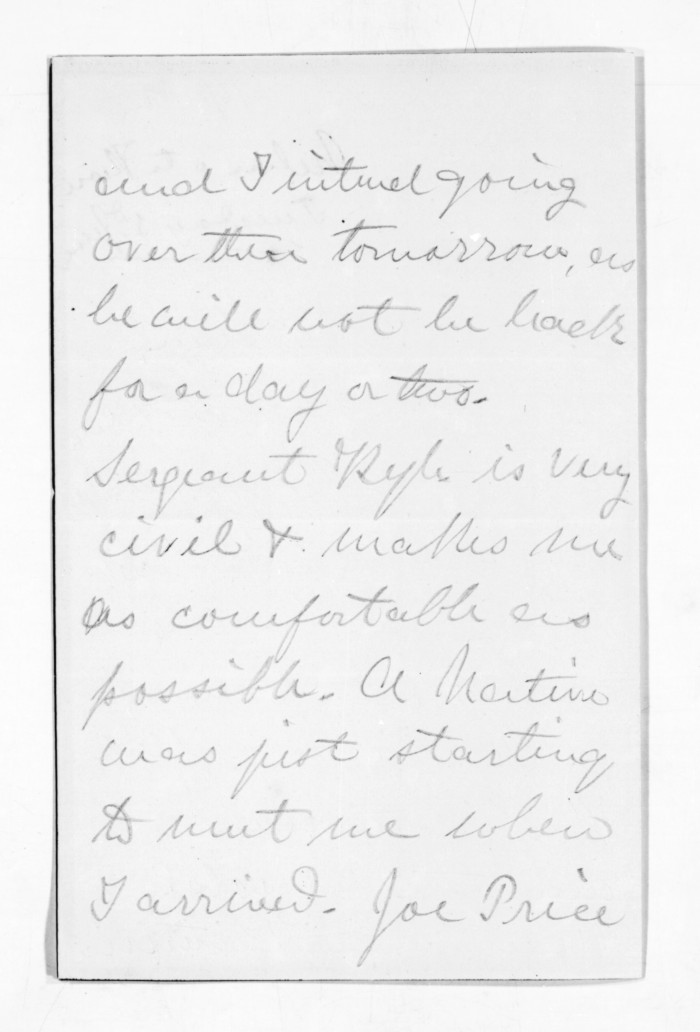 and I intend going
over there tomorrow, as
he will not be back
for a day or two.
Sergeant Kyle is very
civil & makes me
as comfortable as
possible. A Native
was just starting
to meet me when
I arrived. Joe Price